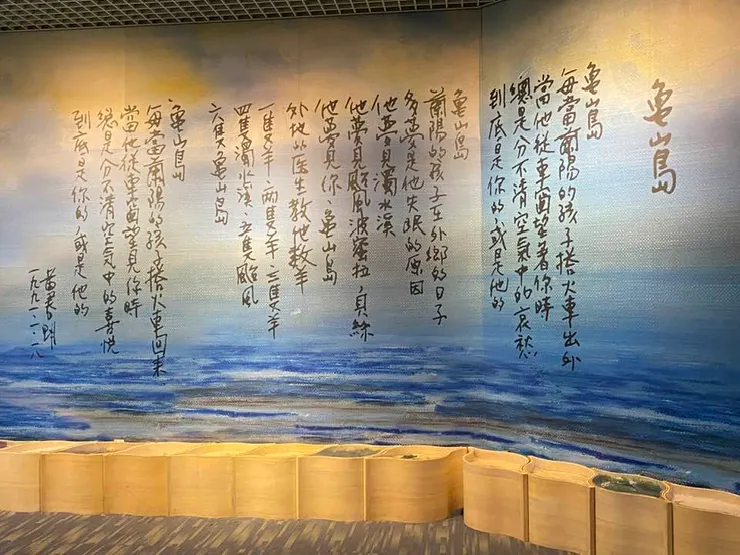 龜山島
龜山島
每當蘭陽的孩子搭火車出外
當他從車窗望著你時
總是分不清空氣中的哀愁
到底是你的,或是他的
龜山島
蘭陽的孩子在外鄉的日子
多夢是他失眠的原因
他夢見濁水溪
他夢見颱風波蜜拉,貝絲
他夢見你,龜山島
外地的医生教他数羊
一隻羊,兩隻羊,三隻羊
四隻濁水溪,五隻颱風
六隻龜山島
龜山島
每當蘭陽的孩子搭火車回來
當他從車窗望見你時
總是分不清空氣中的喜悅
到底是你的,或是他的
黃春明